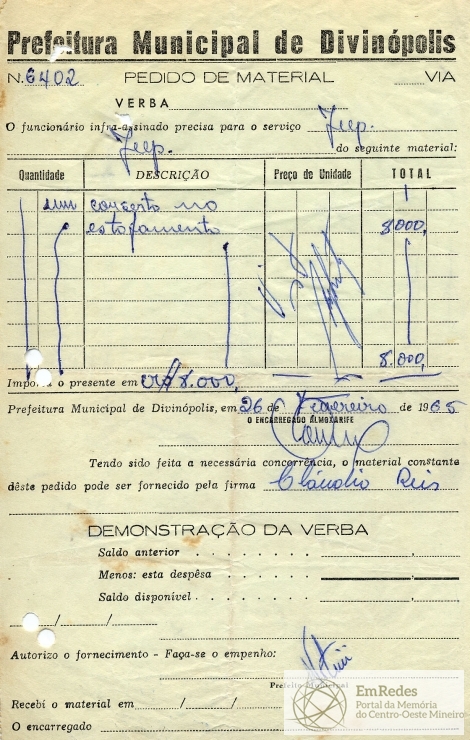 Prefeitura Municipal de Divinópolis
N. 6402 PEDIDO DE MATERIAL VIA
VERBA
O funcionário infra-assinado precisa para o serviço Jeep.
Jeep. do seguinte material:
Quantidade DESCRIÇÃO Preço de Unidade TOTAL
um conserto no
estofamento 8.000,
8.000,
Importa o presente em CR$ 8.000,
Prefeitura Municipal de Divinópolis, em 26 de Fevereiro de 1965
O ENCARREGADO ALMOXARIFE
Tendo sido feita a necessária concorrência, o material constante
dêste pedido pode ser fornecido pela firma Cláudio Reis
DEMONSTRAÇÃO DA VERBA
Saldo anterior
Menos: esta despêsa
Saldo disponível
/ /
Autorizo o fornecimento - Faça-se o empenho:
Prefeito Municipal
Recebí o material em / /
O encarregado
EmRedes
Portal da Memória
do Centro-Oeste Mineiro